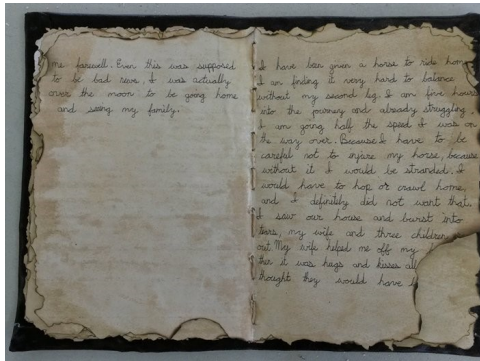 me farewell. Even this was supposed
to be bad news, I was actually
over the moon to be going home
and seeing my family.
I have ben given a horse to ride home
I am finding it very hard to balance
without my second leg. I am five hours
into the journey and already struggling,
I am going half the speed I was on
the way over. Because I have to be
careful not to injure my horse, because
without it I would be stranded. I
would have to hop or crawl home,
and I definitely did not want that.
I saw our house and burst into
tears, my wife and three children
out. My wife helped me off my
then it was hugs and kisses all
thought they would have